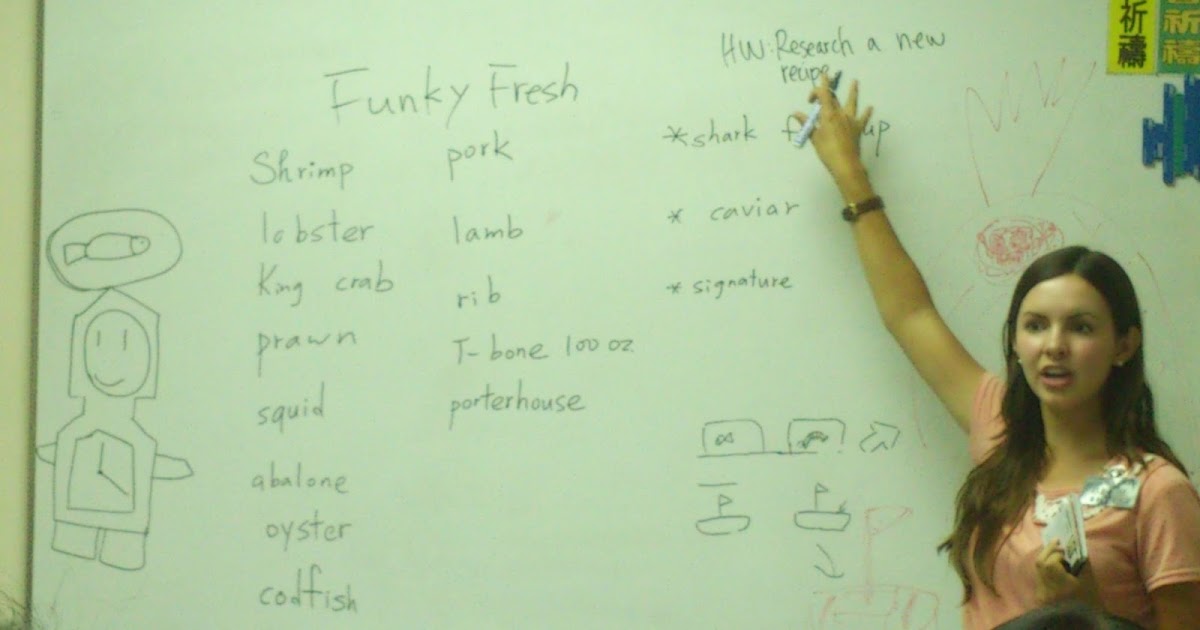 Funky Fresh
Shrimp
lobster
King crab
prawn
squid
abalone
oyster
codfish
pork
lamb
rib
T-bone 100 oz
porterhouse
HW: Research a new
recipe
*shark
* caviar
* signature
祈禱
祈禱